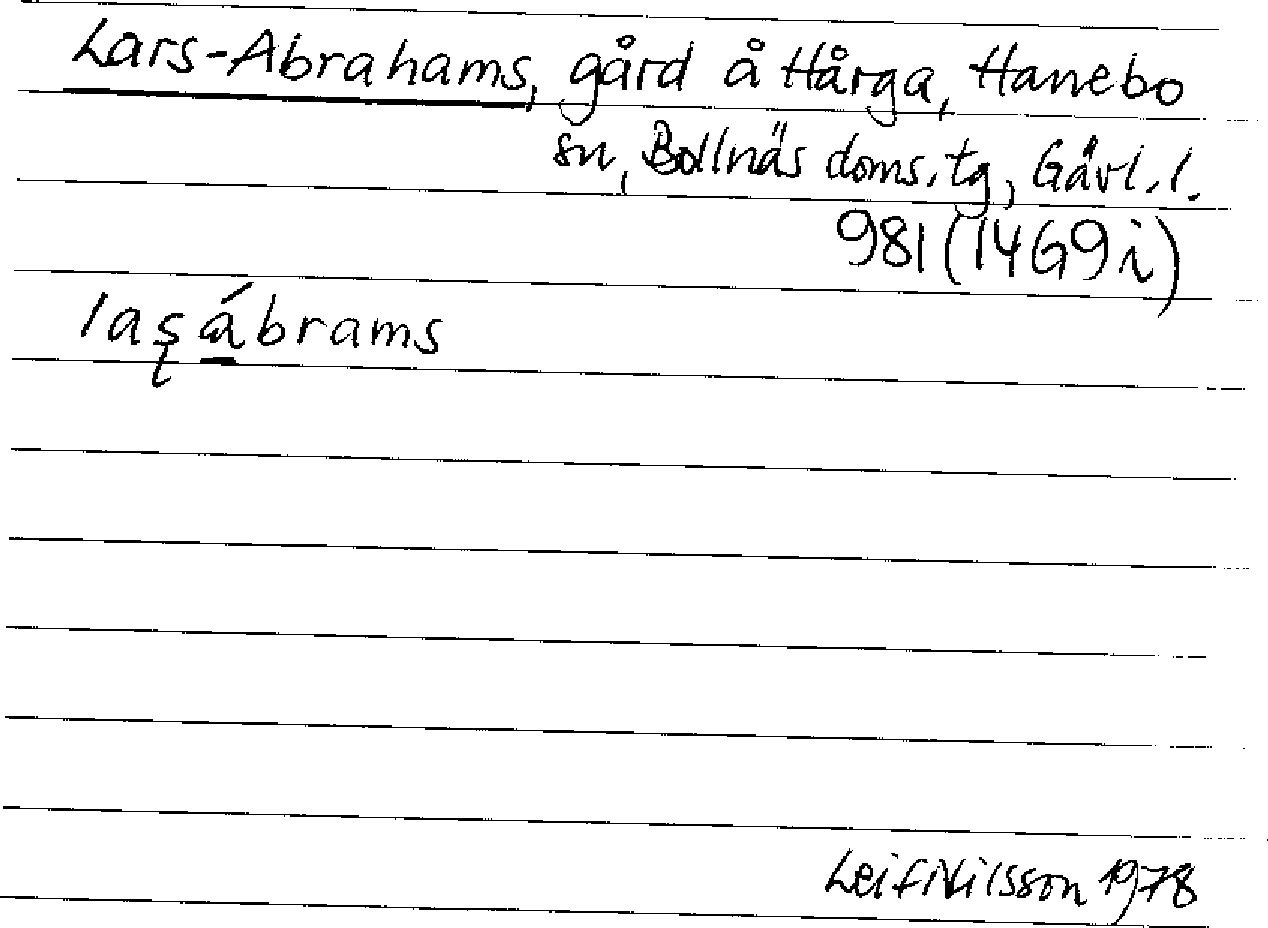 Lars-Abrahams, gård å Hårga, Hanebo
sn, Bollnäs doms.tg, Gävl.l.
981 (14G9i)
laʂ ábrams
Leif Nilsson 1978